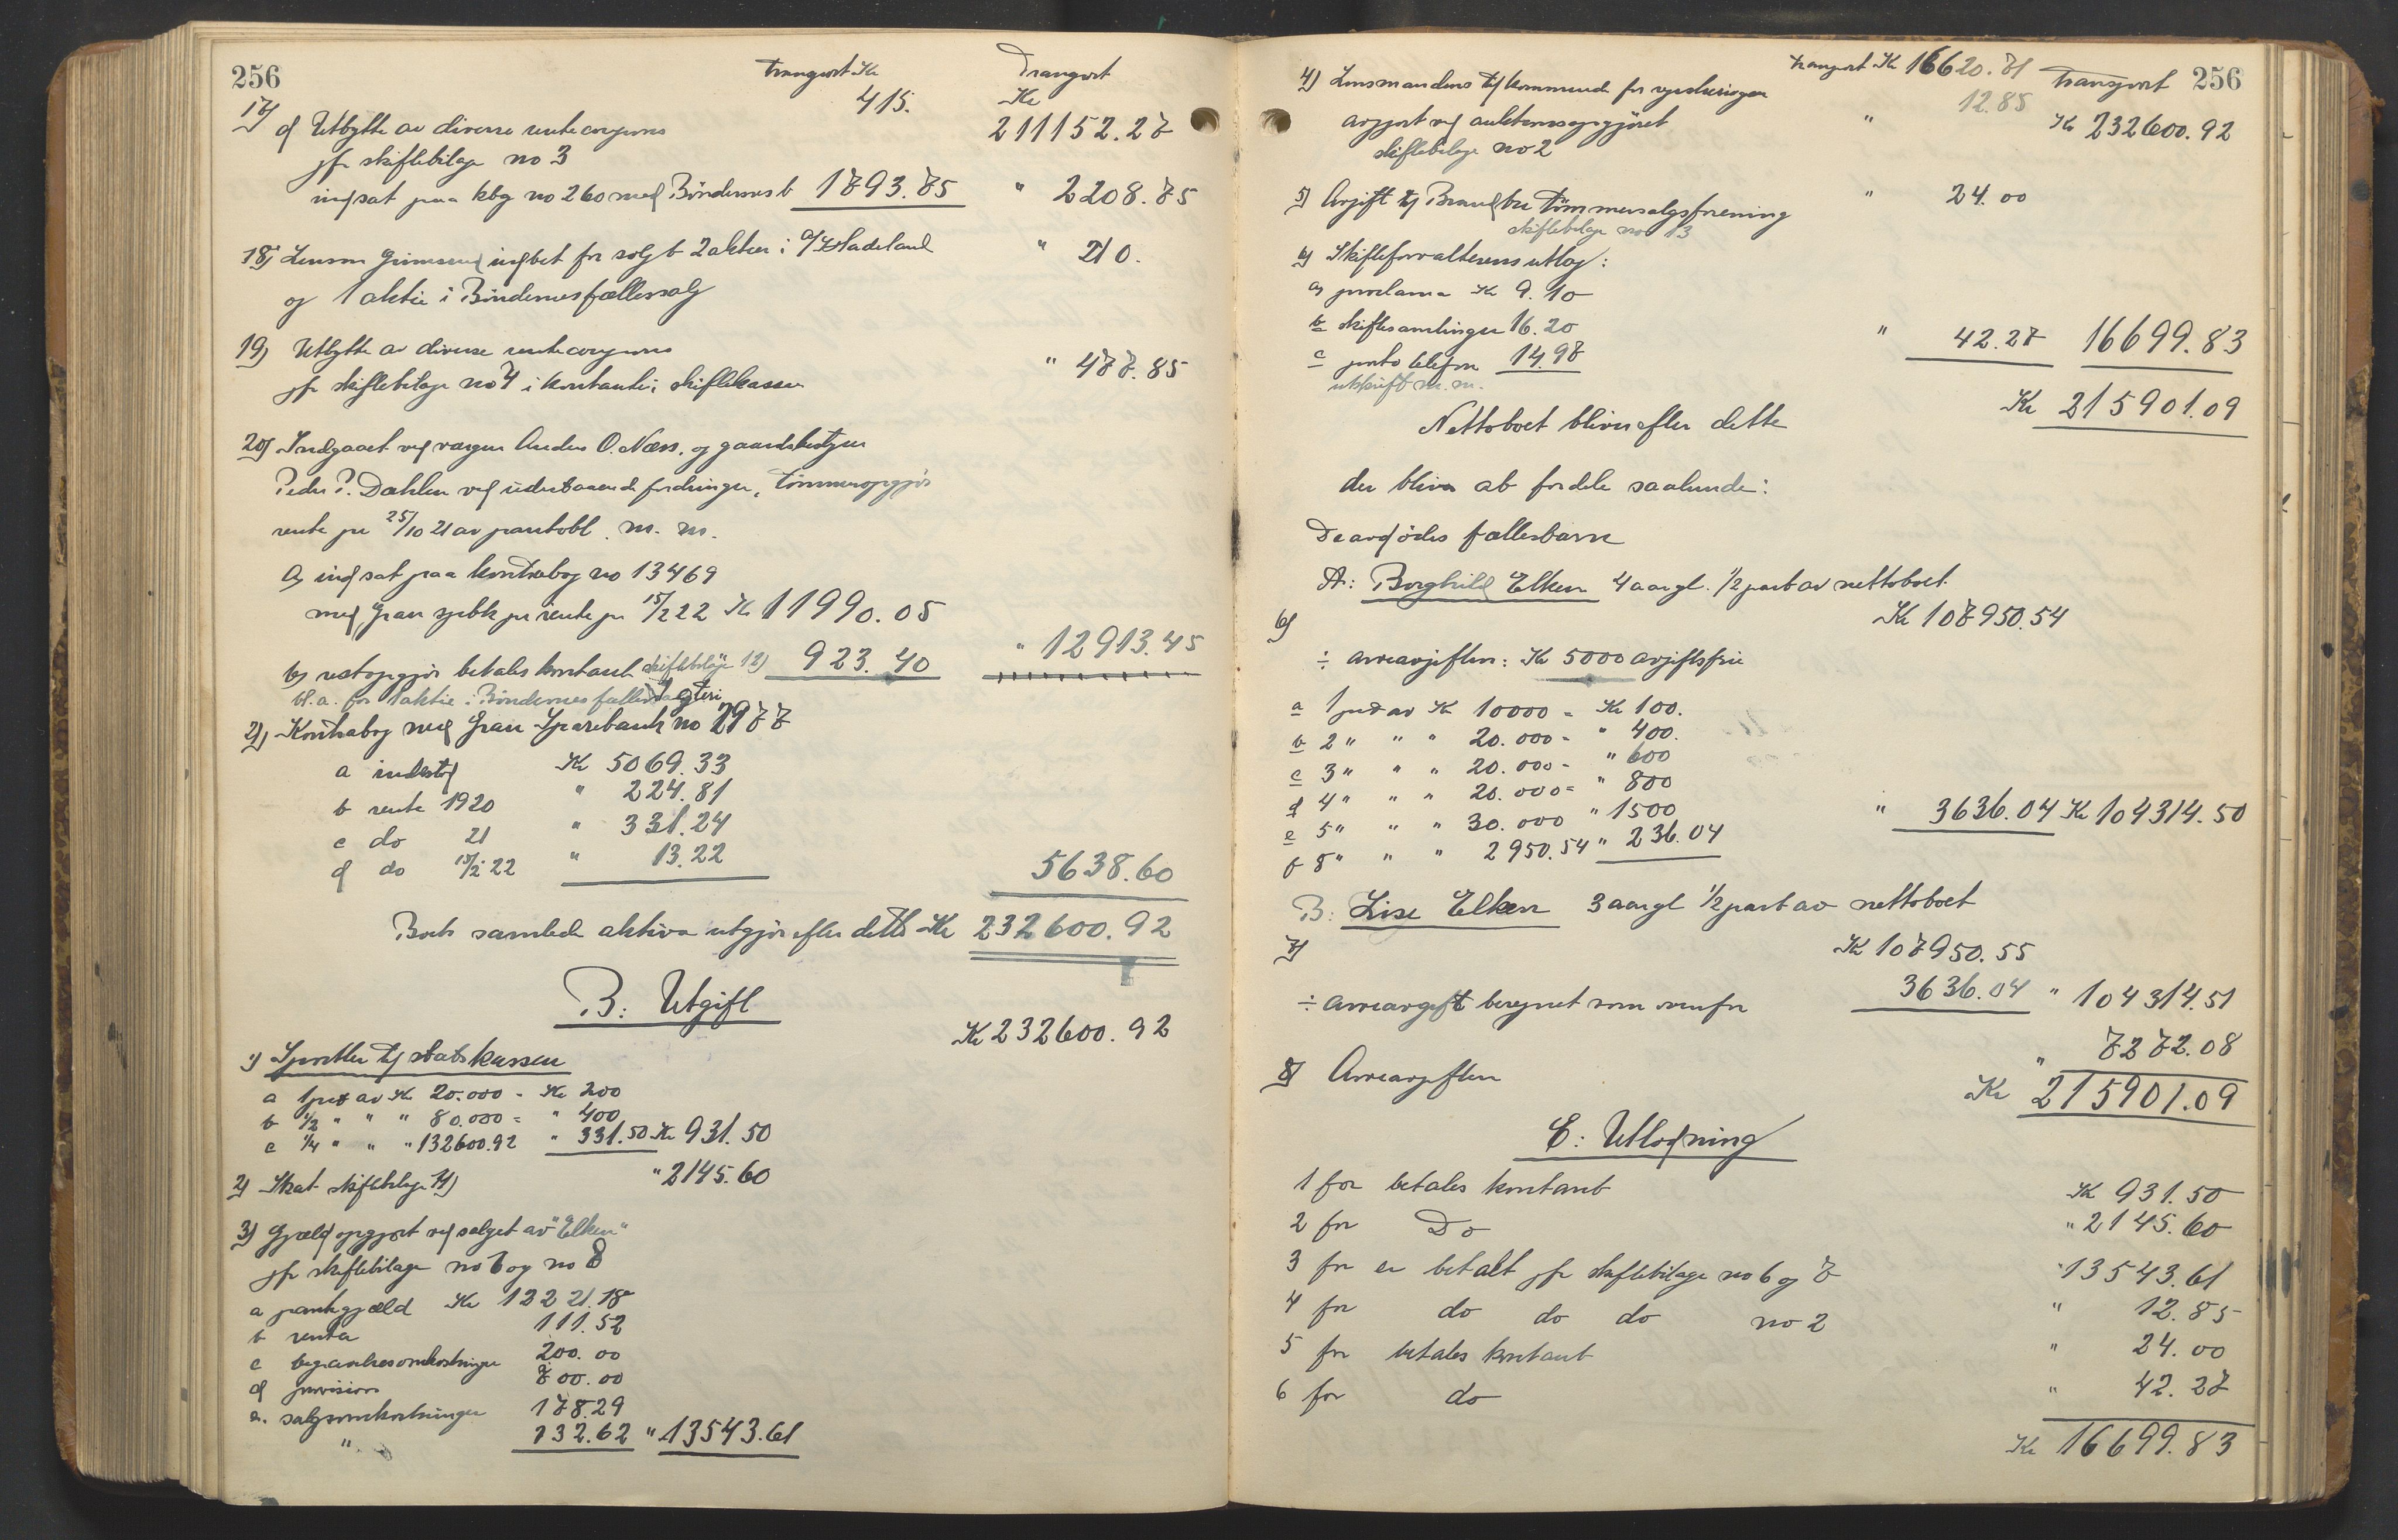 256
Transport Kr Transport
415. Kr
17) d Utbytte av diverse rentecoupons 211152.27
jfr skiftebilage no 3
indsat paa kbg no 260 med Böndernes b 1793.75 " 2208.75
18) Lensm Grimsrud indbet for solgt 2 aktier i A/S Hadeland " 210.
og 1 aktie i Böndernes fællessalg
19) Utbytte av diverse rentecoupons
jfr skiftebilage no 4 i kontanter i skiftekassen " 477.85
20) Indgaaet ved vergen Anders O. Næss, og gaardsbestyrer
Peder P. Dahlen ved utestaaende fordringer, tömmeropgjör
rente pr 25/10 21 av pantobl. m. m.
a) indsat paa kontrabog no 13469
med Gran spbk pr rente pr 15/2 22 Kr 11990.05
b) restopgjör betales kontant skiftebilage 12) 923.40 " 12913.45
bl. a. for 1 aktie i Böndernes fælles slagteri
21) Kontrabog med Gran Sparebank no 2977
a indestod Kr 5069.33
b rente 1920 " 224.81
c do 21 " 331.24
d do 15/2 22 " 13.22 5638.60
Boets samlede aktiva utgjör efter dette Kr 232600.92
B: Utgift
Kr 232600.92
1) Sportler til statskassen
a 1 pct av Kr 20.000 - Kr 200
b 1/2 " " " 80.000 = " 400
c 1/4 " " " 132600.92 " 331.50 Kr 931.50
2) Skat skiftebilage 11) " 2145.60
3) Gjæld opgjort ved salget av "Elken"
jfr skiftebilage no 6 og no 8
a pantegjæld Kr 12221.18
b renter 111.52
c begravelsesomkostninger 200.00
d provision 700.00
e. salgsomkostninger 178.29
" 132.62 " 13543.61
256
Transport Kr 16620.71 Transport
4) Lensmandens tilkommende for vurderingen 12.85
avgjort ved auktionsopgjöret " Kr 232600.92
skiftebilage no 2
5) Avgift til Brandbu tömmersalgsforening " 24.00
skiftebilage no 13
6) Skifteforvalterens utlæg:
a) proclama Kr 9.10
b skiftesamlinger 16.20
c porto telefon 14.97 " 42.27 16699.83
utskrift m. m.
Nettoboet bliver efter dette Kr 215901.09
der bliver at fordele saalunde:
De avdödes fællesbarn
A: Borghild Elken 4 aar gl. 1/2 part av nettoboet
6) Kr 107950.54
÷ arveavgiften: Kr 5000 avgiftsfrie
a 1 pct av Kr 10000 = Kr 100.
b 2 " " " 20.000 = " 400.
c 3 " " " 20.000 = " 600
d 4 " " " 20.000 = " 800
e 5 " " " 30.000 " 1500
f 8 " " " 2950.54 " 236.04 " 3636.04 Kr 104314.50
B: Lise Elken 3 aar gl 1/2 part av nettoboet
7) Kr 107950.55
÷ arveavgift beregnet som ovenfor 3636.04 " 104314.51
8) Arveavgiften " 7272.08
Kr 215901.09
C: Utlodning
1 for betales kontant Kr 931.50
2 for Do " 2145.60
3 for er betalt jfr skiftebilage no 6 og 7 " 13543.61
4 for do do do no 2 " 12.85
5 for betales kontant " 24.00
6 for do " 42.27
Kr 16699.83